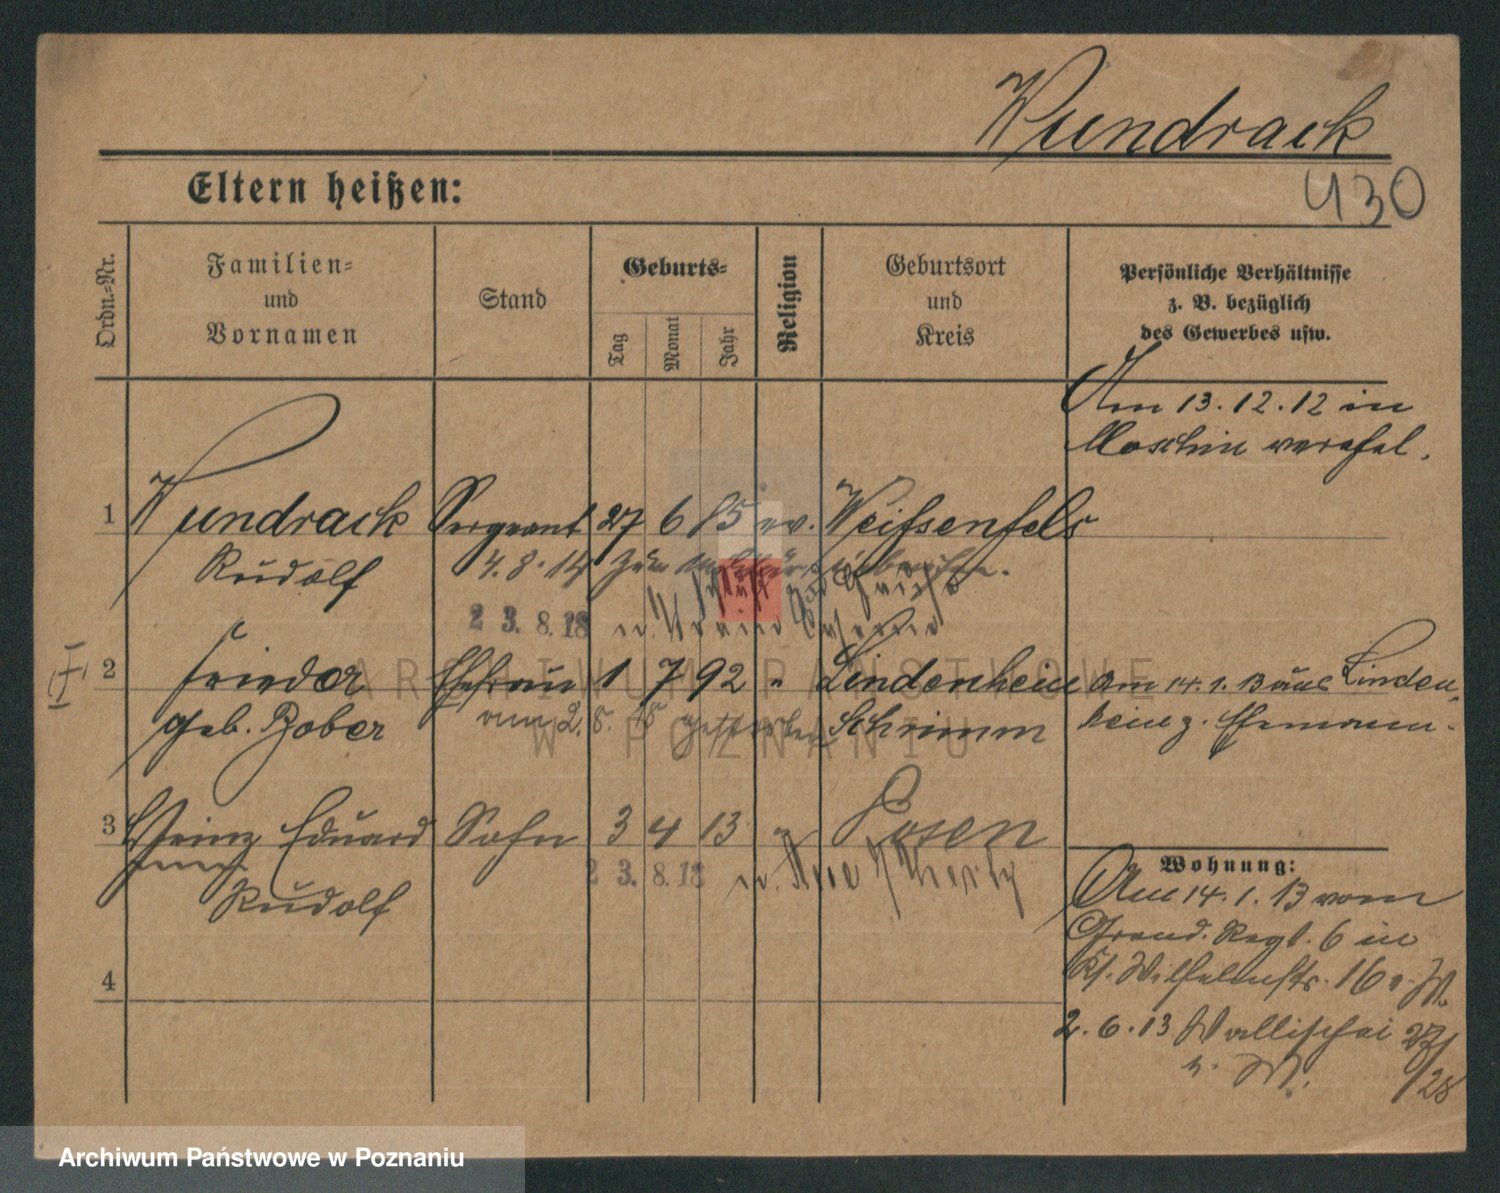 Wundrack
430
Eltern heißen:
Ordn.-Nr.
Familien-
und
Vornamen
Stand
Geburts-
Tag
Monat
Jahr
Religion
Geburtsort
und
Kreis
Persönliche Verhältnisse
z. B. bezüglich
des Gewerbes usw.
Am 13.12.12 in
Moschin verehel.
1 Wundrack Sergeant 27 6 85 ev. Weißenfels
Rudolf 4.8.14 zum
23.8.18
2 Frieda Ehefrau 1 7 92 " Lindenheim Am 14.1.13 aus Linden-
geb. Bober am 2.8.15 gestorben Schrimm heim z. Ehemann.
3 Heinz Eduard Sohn 3 4 13 " Posen
Rudolf
23.8.18
Wohnung:
Am 14.1.13 vom
Grend. Regt. 6 in
Kl. Wilhelmstr. 16
4
2.6.13 Wallischei 27/28
ARCHIWUM PAŃSTWOWE
W POZNANIU
Archiwum Państwowe w Poznaniu